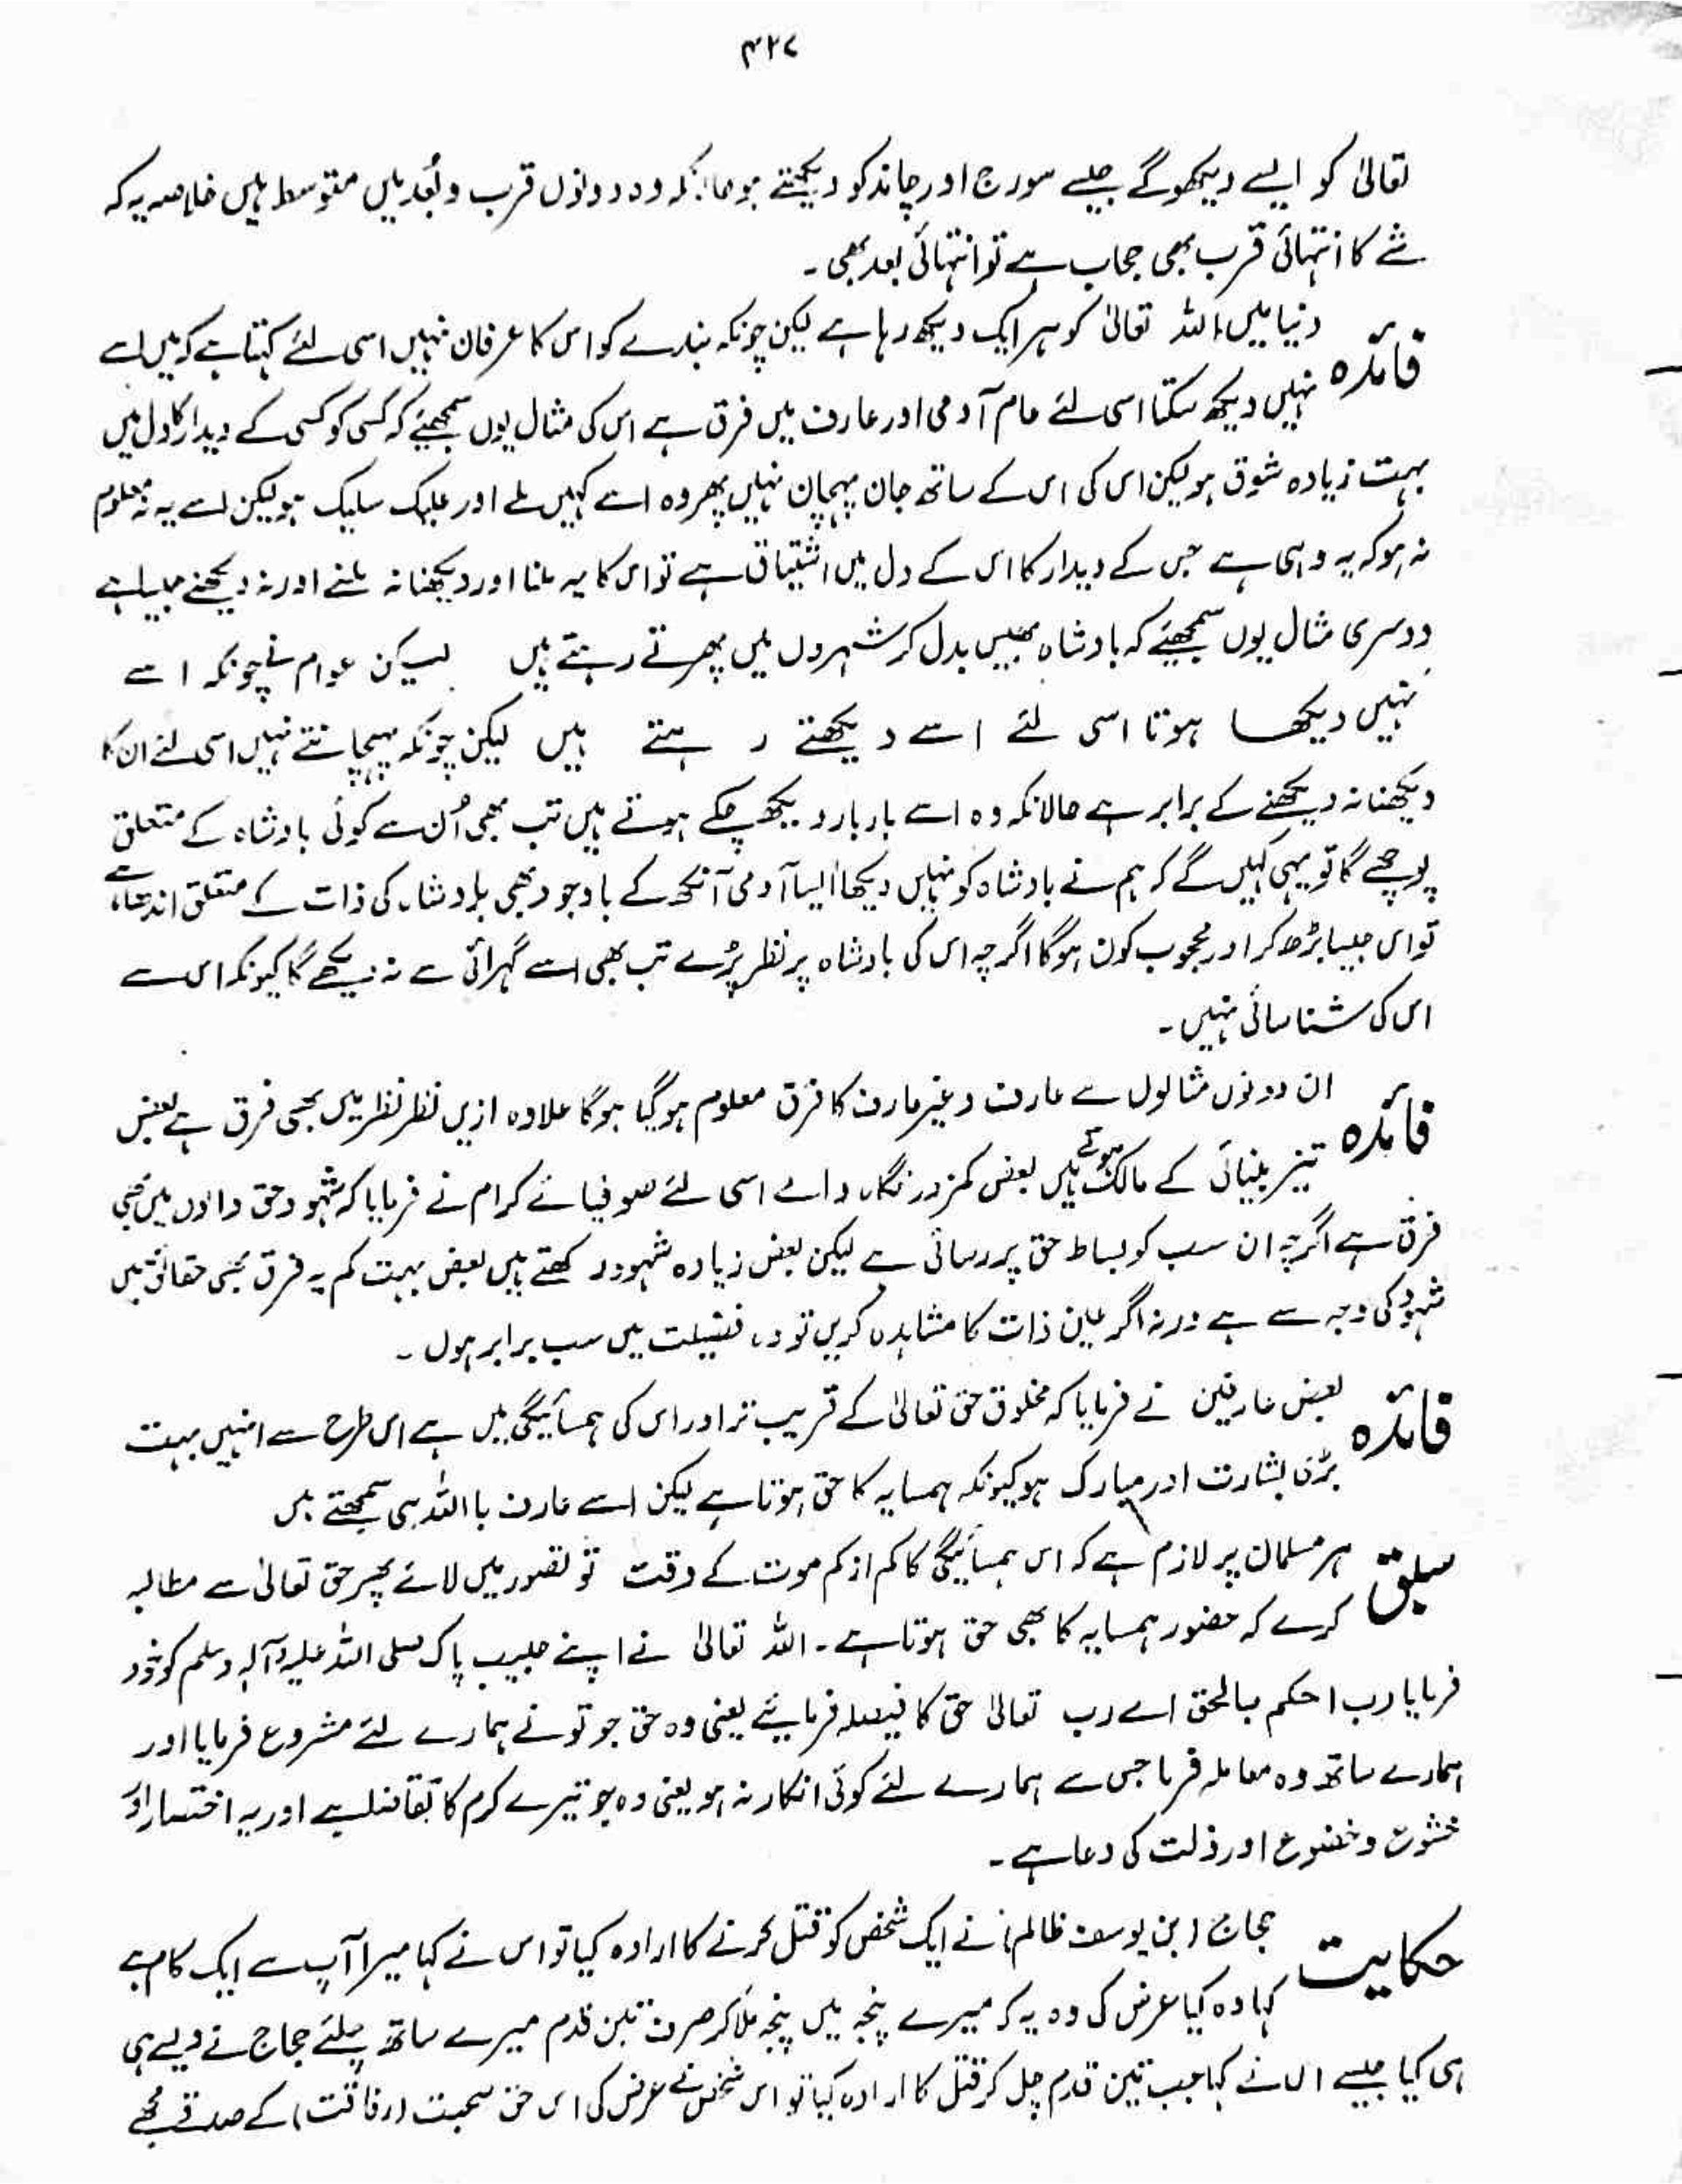 ۴۲۷
تعالیٰ کو ایسے دیکھو گے جیسے سورج اور چاند کو دیکھتے ہو حالانکہ وہ دونوں قرب و بُعد میں متوسط ہیں خلاصہ یہ کہ
شے کا انتہائی قرب بھی حجاب ہے تو انتہائی بعد بھی ۔
فائدہ دنیا میں اللہ تعالیٰ کو ہر ایک دیکھ رہا ہے لیکن چونکہ بندے کو اس کا عرفان نہیں اسی لئے کہتا ہے کہ میں اسے
نہیں دیکھ سکتا اسی لئے عام آدمی اور عارف میں فرق ہے اس کی مثال یوں سمجھئے کہ کسی کو کسی کے دیدار کا دل میں
بہت زیادہ شوق ہو لیکن اس کی اس کے ساتھ جان پہچان نہیں پھر وہ اسے کہیں ملے اور علیک سلیک ہو لیکن اسے یہ نہ معلوم
نہ ہو کہ یہ وہی ہے جس کے دیدار کا اس کے دل میں اشتیاق ہے تو اس کا یہ ملنا اور دیکھنا نہ ملنے اور نہ دیکھنے جیسا ہے
دوسری مثال یوں سمجھئے کہ بادشاہ بھیس بدل کر شہروں میں پھرتے رہتے ہیں لیکن عوام نے چونکہ اسے
نہیں دیکھا ہوتا اسی لئے اسے دیکھتے رہتے ہیں لیکن چونکہ پہچانتے نہیں اسی لئے ان کا
دیکھنا نہ دیکھنے کے برابر ہے حالانکہ وہ اسے بار بار دیکھ چکے ہوتے ہیں تب بھی اُن سے کوئی بادشاہ کے متعلق
پوچھے گا تو یہی کہیں گے کہ ہم نے بادشاہ کو نہیں دیکھا ایسا آدمی آنکھ کے باوجود بھی بادشاہ کی ذات کے متعلق اندھا ہے
تو اس جیسا بڑھ کر اور محجوب کون ہوگا اگرچہ اس کی بادشاہ پر نظر پڑے تب بھی اسے گہرائی سے نہ دیکھے گا کیونکہ اس سے
اس کی شناسائی نہیں ۔
فائدہ ان دونوں مثالوں سے عارف و غیر عارف کا فرق معلوم ہو گیا ہوگا علاوہ ازیں نظر نظر میں بھی فرق ہے بعض
تیز بینائی کے مالک ہوتے ہیں بعض کمزور نگاہ والے اسی لئے صوفیائے کرام نے فرمایا کہ شہود حق والوں میں بھی
فرق ہے اگرچہ ان سب کو بساط حق پر رسائی ہے لیکن بعض زیادہ شہود رکھتے ہیں بعض بہت کم یہ فرق بھی حقائق میں
شہود کی وجہ سے ہے ورنہ اگر عین ذات کا مشاہدہ کریں تو وہ فضیلت میں سب برابر ہوں ۔
فائدہ بعض عارفین نے فرمایا کہ مخلوق حق تعالیٰ کے قریب تر اور اس کی ہمسائیگی میں ہے اس طرح سے انہیں بہت
بڑی بشارت اور مبارک ہو کیونکہ ہمسایہ کا حق ہوتا ہے لیکن اسے عارف با اللہ ہی سمجھتے ہیں
سبق ہر مسلمان پر لازم ہے کہ اس ہمسائیگی کا کم از کم موت کے وقت تو تصور میں لائے پھر حق تعالیٰ سے مطالبہ
کرے کہ حضور ہمسایہ کا بھی حق ہوتا ہے ۔ اللہ تعالیٰ نے اپنے حبیب پاک صلی اللہ علیہ وآلہ وسلم کو خود
فرمایا رب احکم بالحق اے رب تعالیٰ حق کا فیصلہ فرمایئے یعنی وہ حق جو تو نے ہمارے لئے مشروع فرمایا اور
ہمارے ساتھ وہ معاملہ فرما جس سے ہمارے لئے کوئی انکار نہ ہو یعنی وہ جو تیرے کرم کا تقاضا ہے اور یہ اختصار اور
خشوع و خضوع اور ذلت کی دعا ہے ۔
حکایت حجاج (ابن یوسف ظالم) نے ایک شخص کو قتل کرنے کا ارادہ کیا تو اس نے کہا میرا آپ سے ایک کام ہے
کہا وہ کیا عرض کی وہ یہ کہ میرے پنجہ میں پنجہ ملا کر صرف تین قدم میرے ساتھ چلئے حجاج نے ویسے ہی
ہی کیا جیسے اس نے کہا جب تین قدم چل کر قتل کا ارادہ کیا تو اس شخص نے عرض کی اس حق صحبت (رفاقت) کے صدقے مجھے